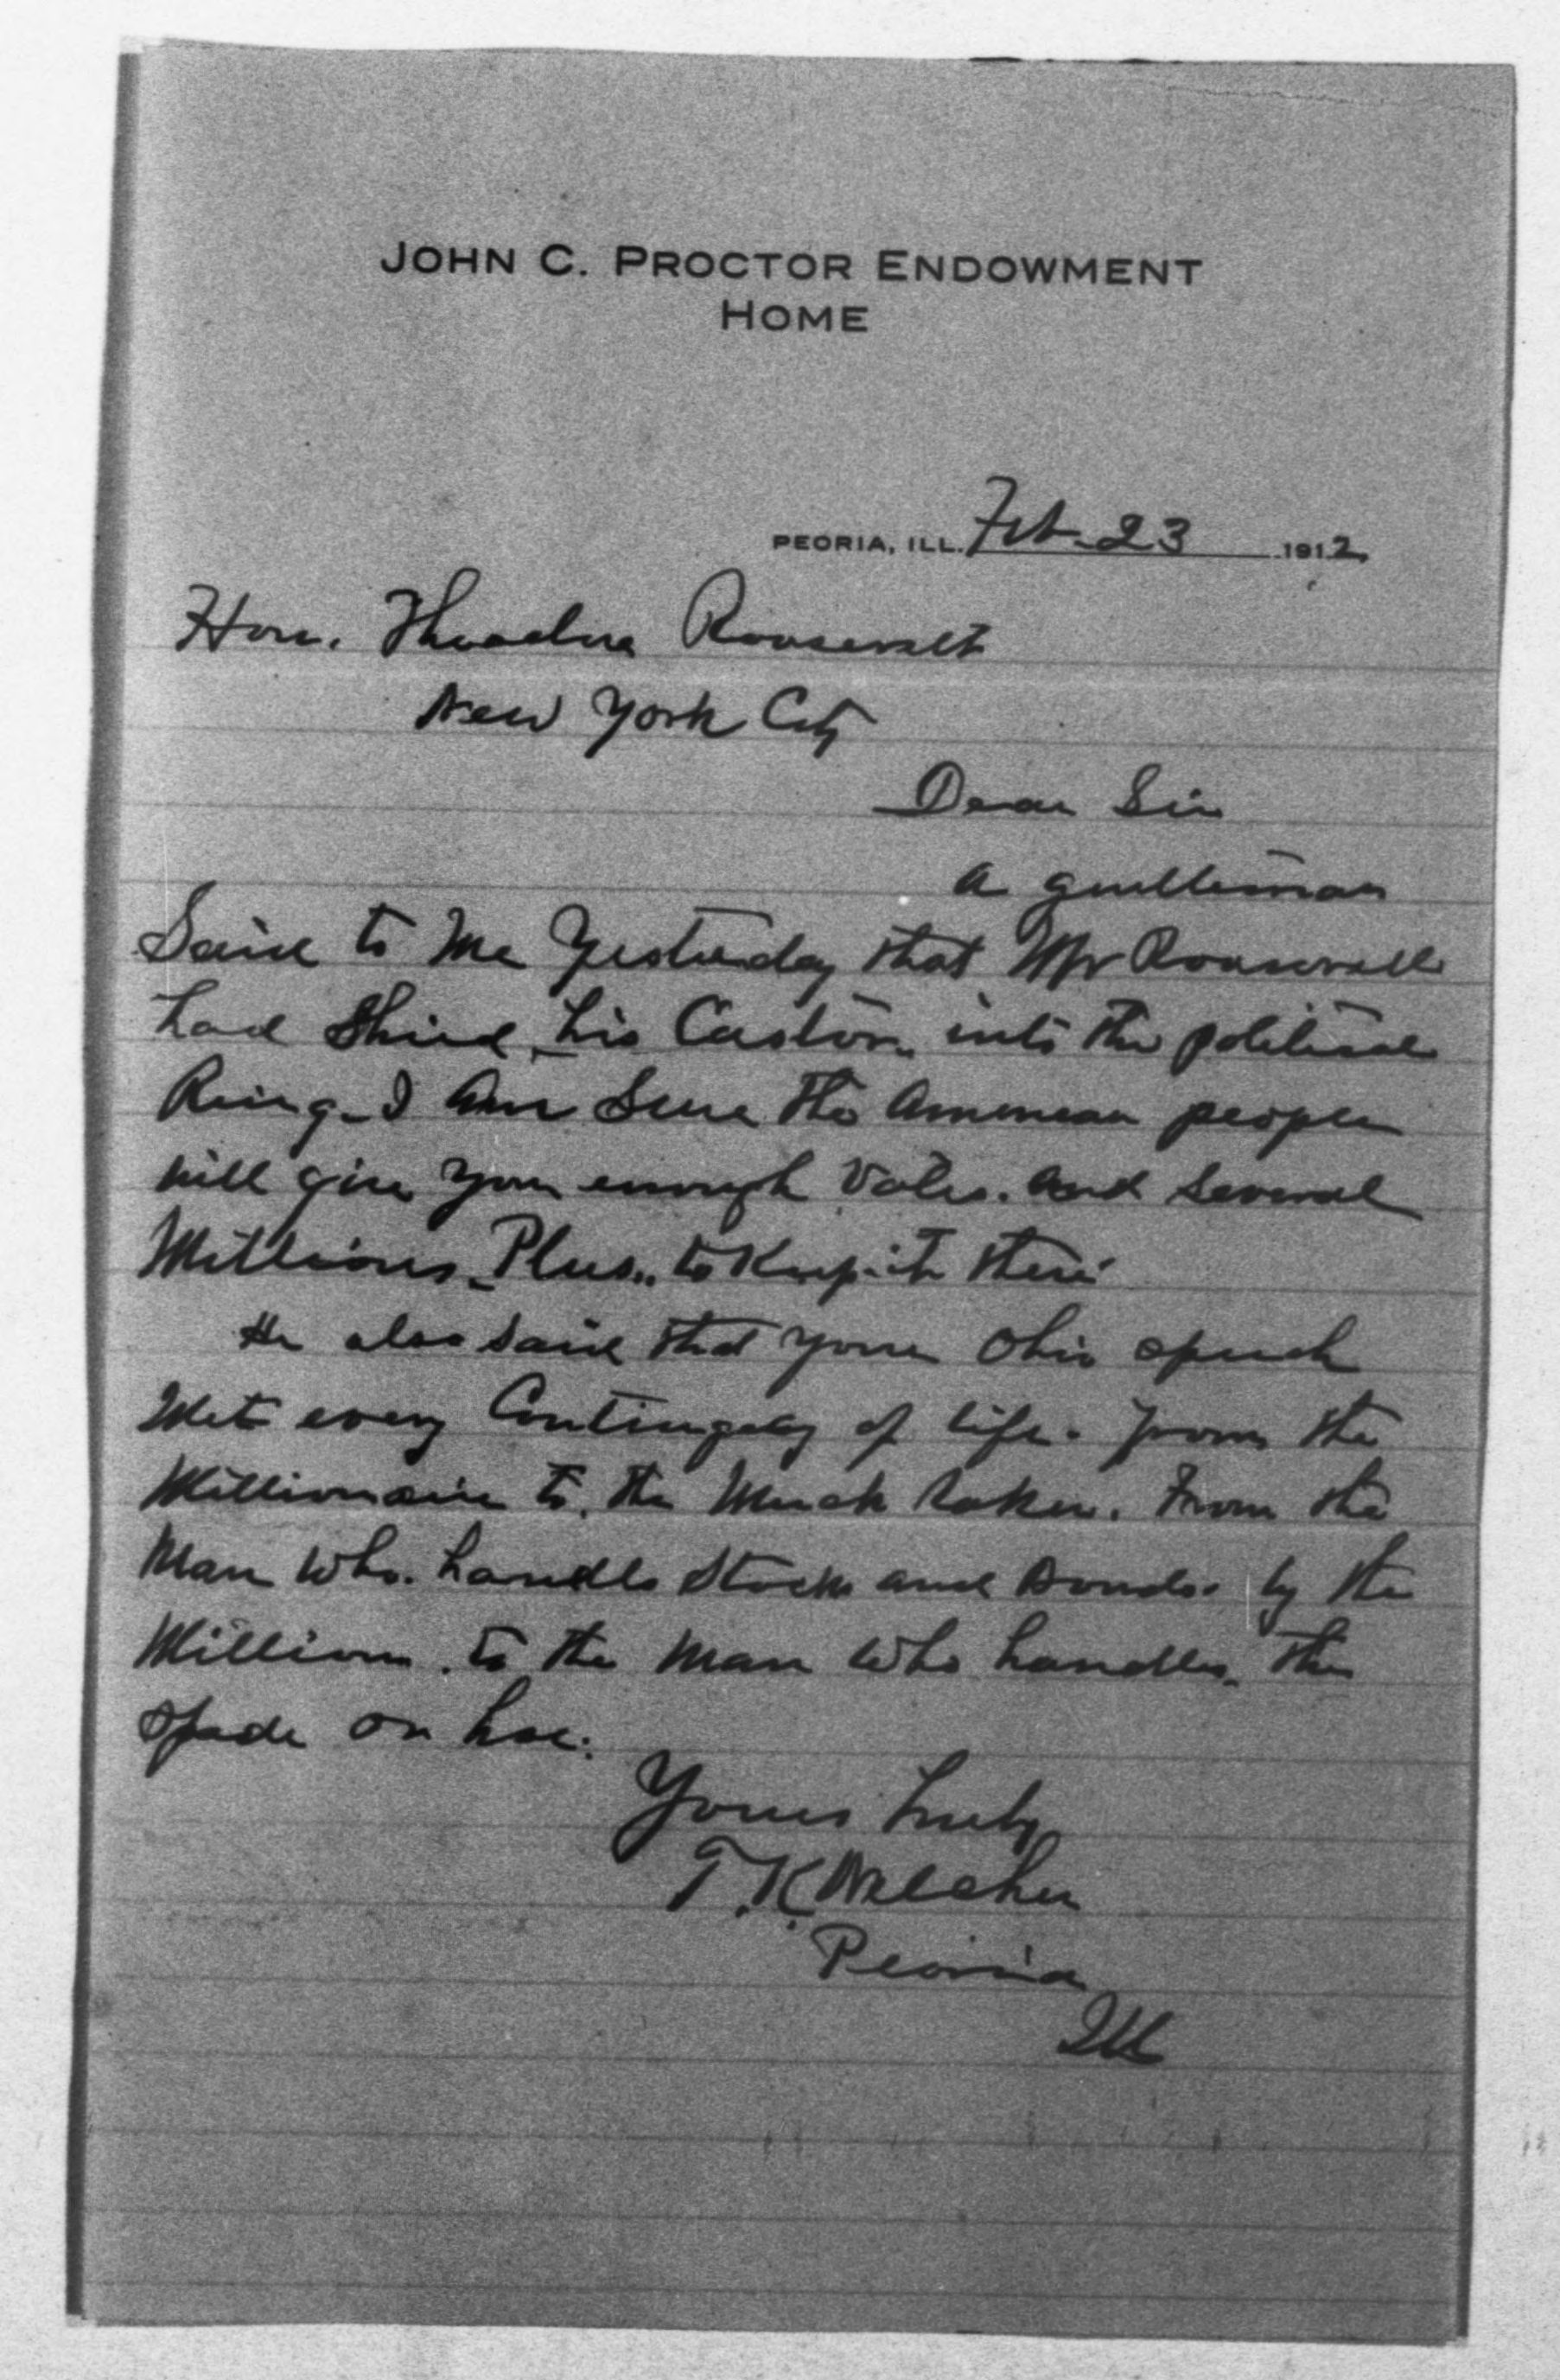 JOHN C. PROCTOR ENDOWMENT
HOME
PEORIA, ILL. Feb. 23 1912
Hon. Theodore Roosevelt
New York City
Dear Sir
A gentleman
Said to Me Yesterday that Mr Roosevelt
had Shied his Castor into the political
Ring. I Am Sure the American people
will give you enough Votes. And Several
Millions Plus,, to Keep it there
He also Said that your Ohio speech
Met every Contingency of life. from the
Millionaire to the Muck Raker. From the
Man who. handles Stocks and Bonds. by the
Million. to the Man who handles the
spade or hoe.
Yours truly
T. K.
Peoria
Ill